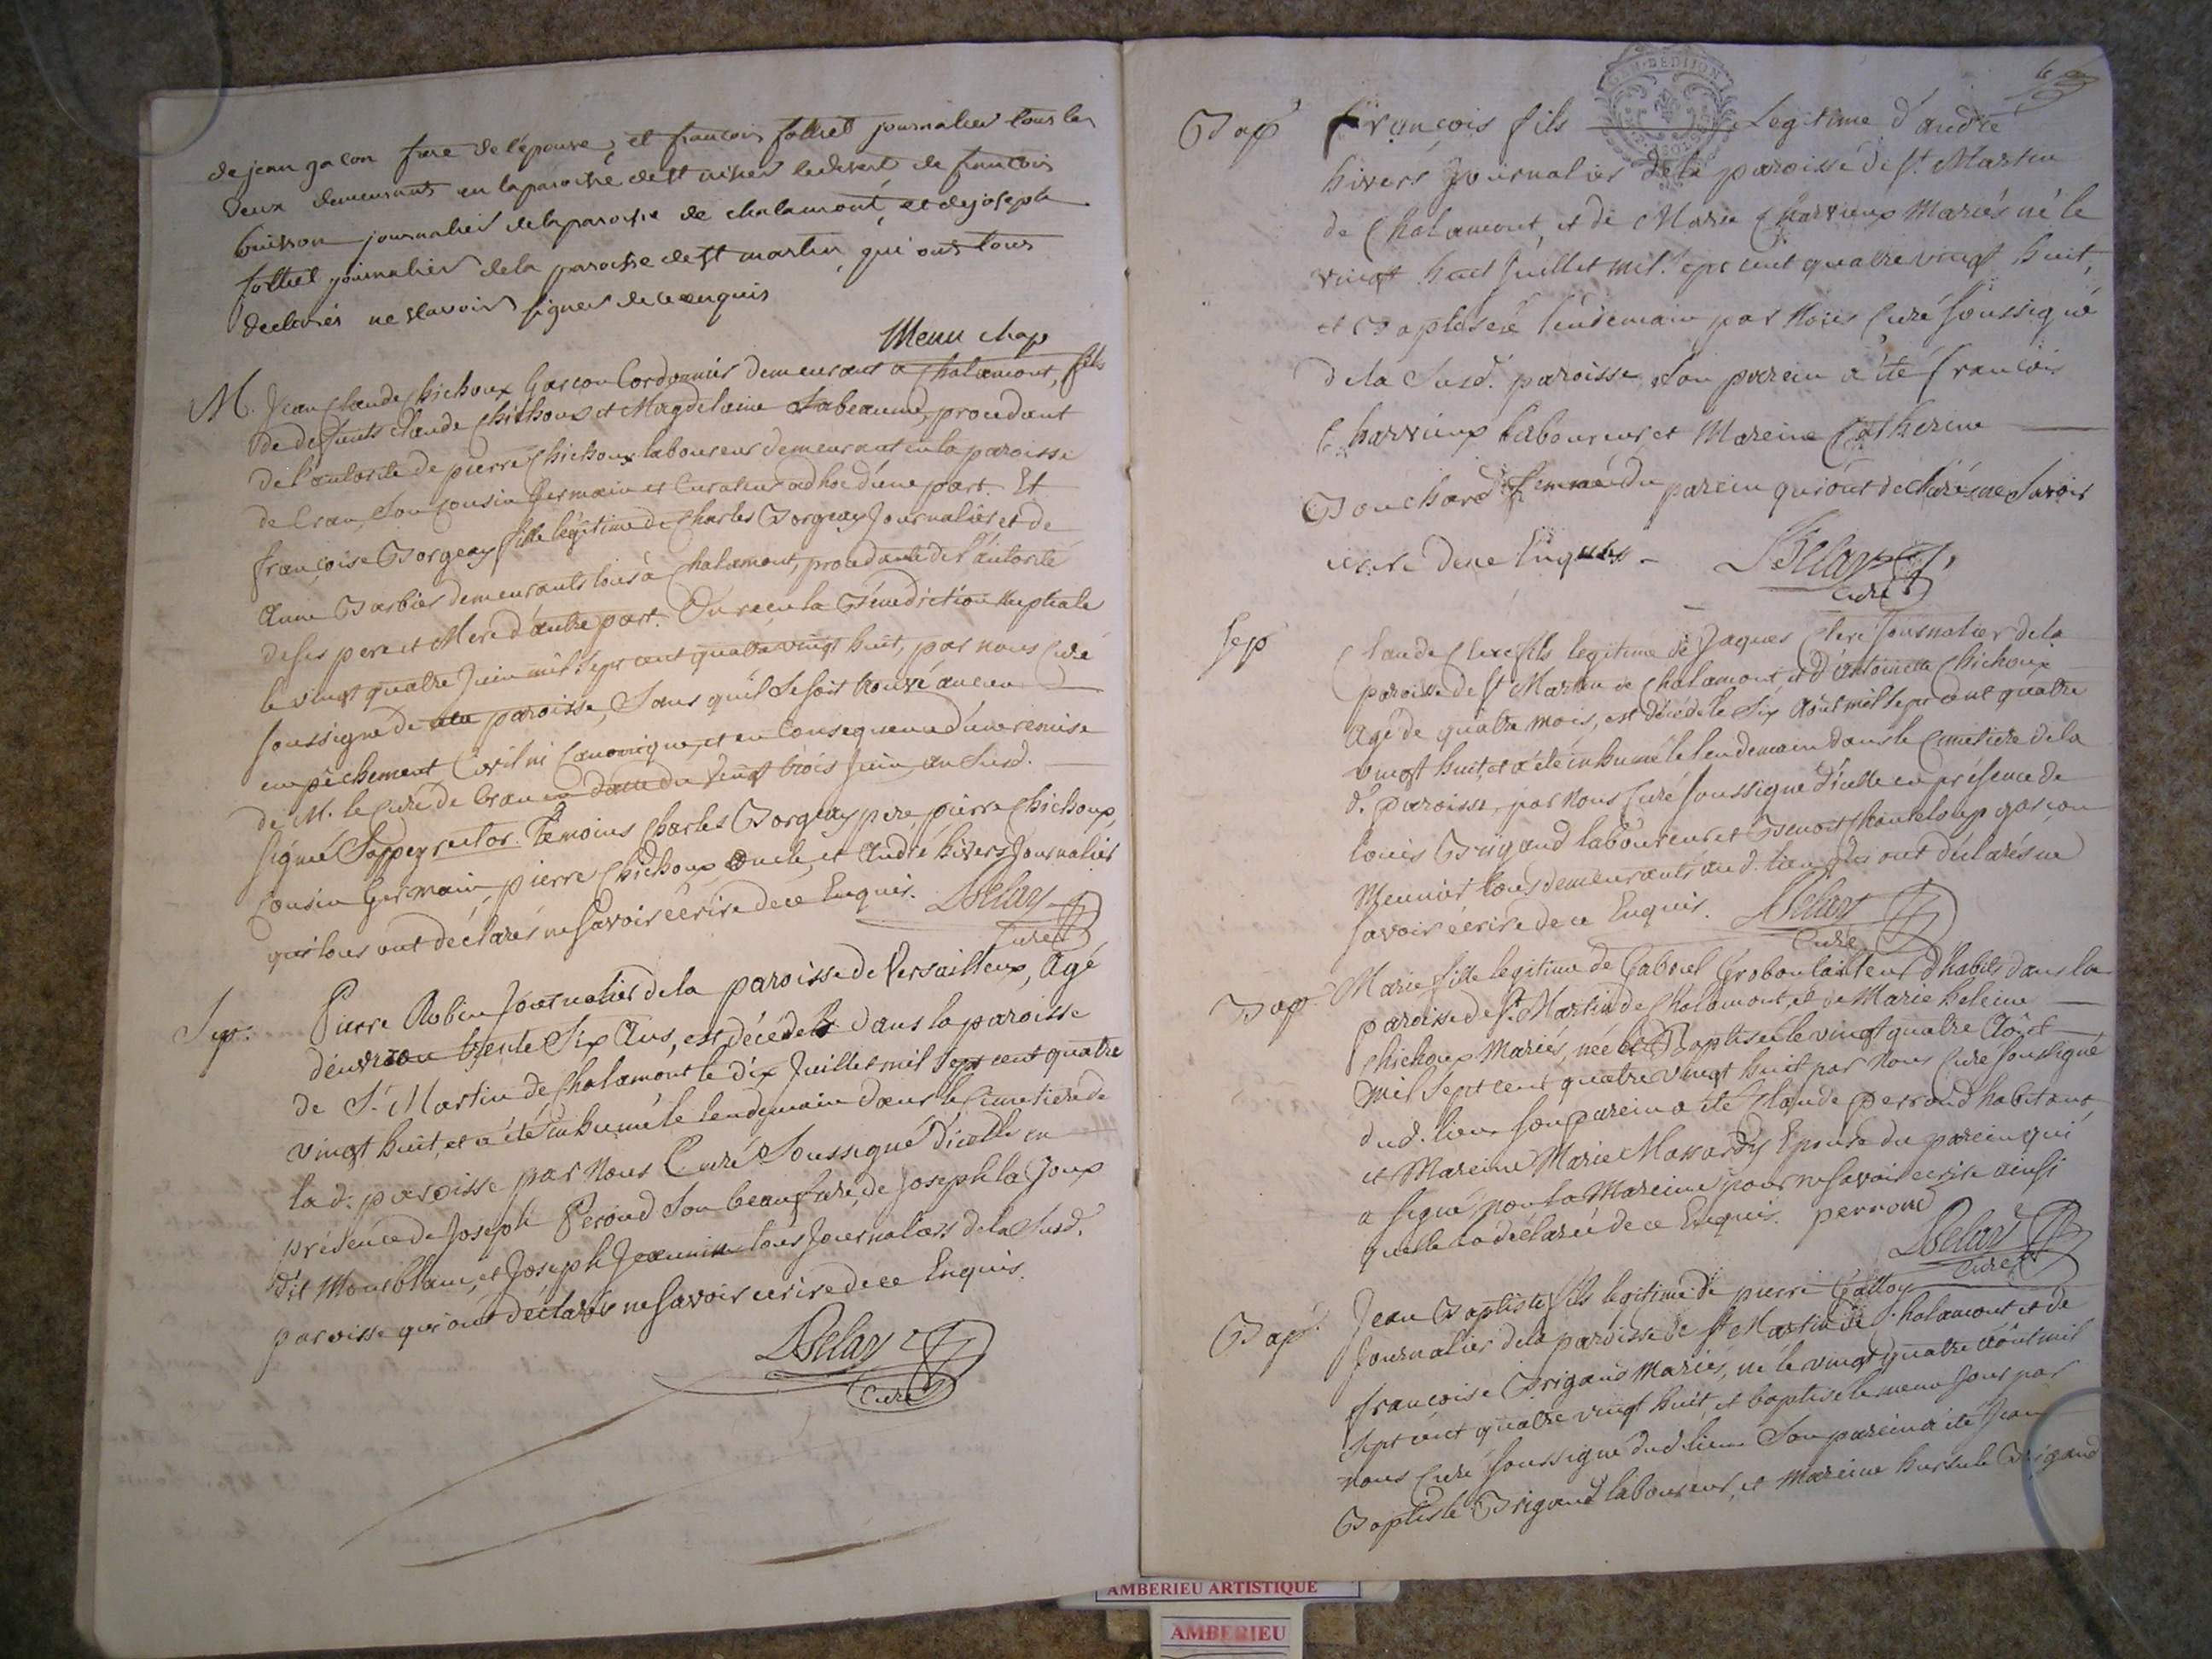 de jean gacon frere de l'epouse, et francois follict journalier tous les
deux demeurants en la paroisse de st nisier le desert de francois
buisson journalier de la paroisse de chalamont, et de joseph
follict journalier de la paroisse de st martin, qui ont tous
declarés ne scavoir signer de ce enquis
Menu chap
M. Jean Claude Chichoux Garcon Cordonnier demeurant a Chalamont, fils
de deffunts Claude Chichoux et Magdelaine Labeaume, procedant
de l'autorité de pierre Chichoux laboureur demeurant en la paroisse
de Cran, son cousin Germain et Curateur ad hoc d'une part. Et
françoise Borgeay fille légitime de Charles Borgeay Journalier et de
Anne Barbier demeurants tous à Chalamont, procedante de l'autorité
de ses pere et Mere d'autre part. Ont reçu la Bénédiction Nuptiale
le vingt quatre Juin mil sept cent quatre vingt huit, par nous Curé
soussigné de paroisse, sans qu'il se soit trouvé aucun
empêchement Civil ni Canonique, et en Consequence d'une remise
de M. le Curé de Cran en datte du vingt trois Juin an susd.
signé Sappey rector. Témoins Charles Borgeay pere, pierre Chichoux,
Cousin Germain, pierre Chichoux oncle, et André hivers Journalier
qui tous ont déclarés ne savoir écrire de ce Enquis. Delay
Curé
Sep. Pierre Robin Journalier de la paroisse de Versailleux, Agé
d'environ trente six Ans, est décédé dans la paroisse
de St. Martin de Chalamont le dix Juillet mil sept cent quatre
vingt huit, et a été inhumé le lendemain dans le Cimetiere de
lad. paroisse par Nous Curé Soussigné d'icelle en
présence de Joseph Peroud son beau frere, de Joseph la Joux
dit Montblanc, et Joseph Jeannin tous Journaliers de la Susd.
paroisse qui ont déclarés ne savoir écrire de ce Enquis.
Delay
Curé
GEN. DE DIJON
Bap. François fils Legitime d'andré
hivers Journalier de la paroisse de St. Martin
de Chalamont, et de Marie Charvieux Mariés né le
vingt huit Juillet mil sept cent quatre vingt huit,
et Baptisé le lendemain par Nous Curé soussigné
de la Susd. paroisse, son parein a été francois
Charvieux laboureur et Mareine Catherine
Bouchard femme du parein qui ont declaré ne savoir
écrire de ce Enquis. Delay
Curé
Sep. Claude Clerc fils legitime de Jaques Clerc Journalier de la
paroisse de St Martin de Chalamont, et d'Antoinette Chichoux
Agé de quatre mois, est décédé le six Août mil sept cent quatre
vingt huit, et a été inhumé le lendemain dans le Cimetiere de la
d. paroisse, par Nous Curé soussigné d'icelle en présence de
louis Brigand laboureur et Benoit Chanteloup garçon
Meunier tous demeurants aud. lieu qui ont déclarés ne
savoir écrire de ce Enquis. Delay
Curé
Bap. Marie fille legitime de Gabriel Grobon tailleur d'habits dans la
paroisse de St. Martin de Chalamont, et de Marie heleine
Chichoux Mariés, née et Baptisée le vingt quatre Août
mil sept cent quatre vingt huit par Nous Curé soussigné
dud. lieu son parein a été Claude perroud habitant
et Mareine Marie Massardy Epouse du parein qui
a signé, non la Mareine pour ne savoir écrire ainsi
quelle l'a déclaré de ce Enquis. perroud
Delay
Curé
Bap. Jean Baptiste fils legitime de pierre Galloy
Journalier de la paroisse de St Martin de Chalamont et de
françoise Brigand Mariés, né le vingt quatre Août mil
sept cent quatre vingt huit, et baptisé le meme Jour par
nous Curé soussigné dud. lieu Son parein a été Jean
Baptiste Brigand laboureur, et Mareine hursule Brigand
AMBERIEU ARTISTIQUE
AMBERIEU